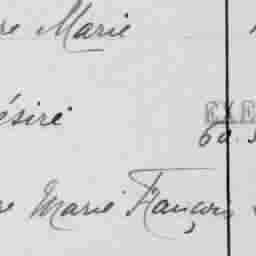 re Marie
ésiré
60.
re Marie François